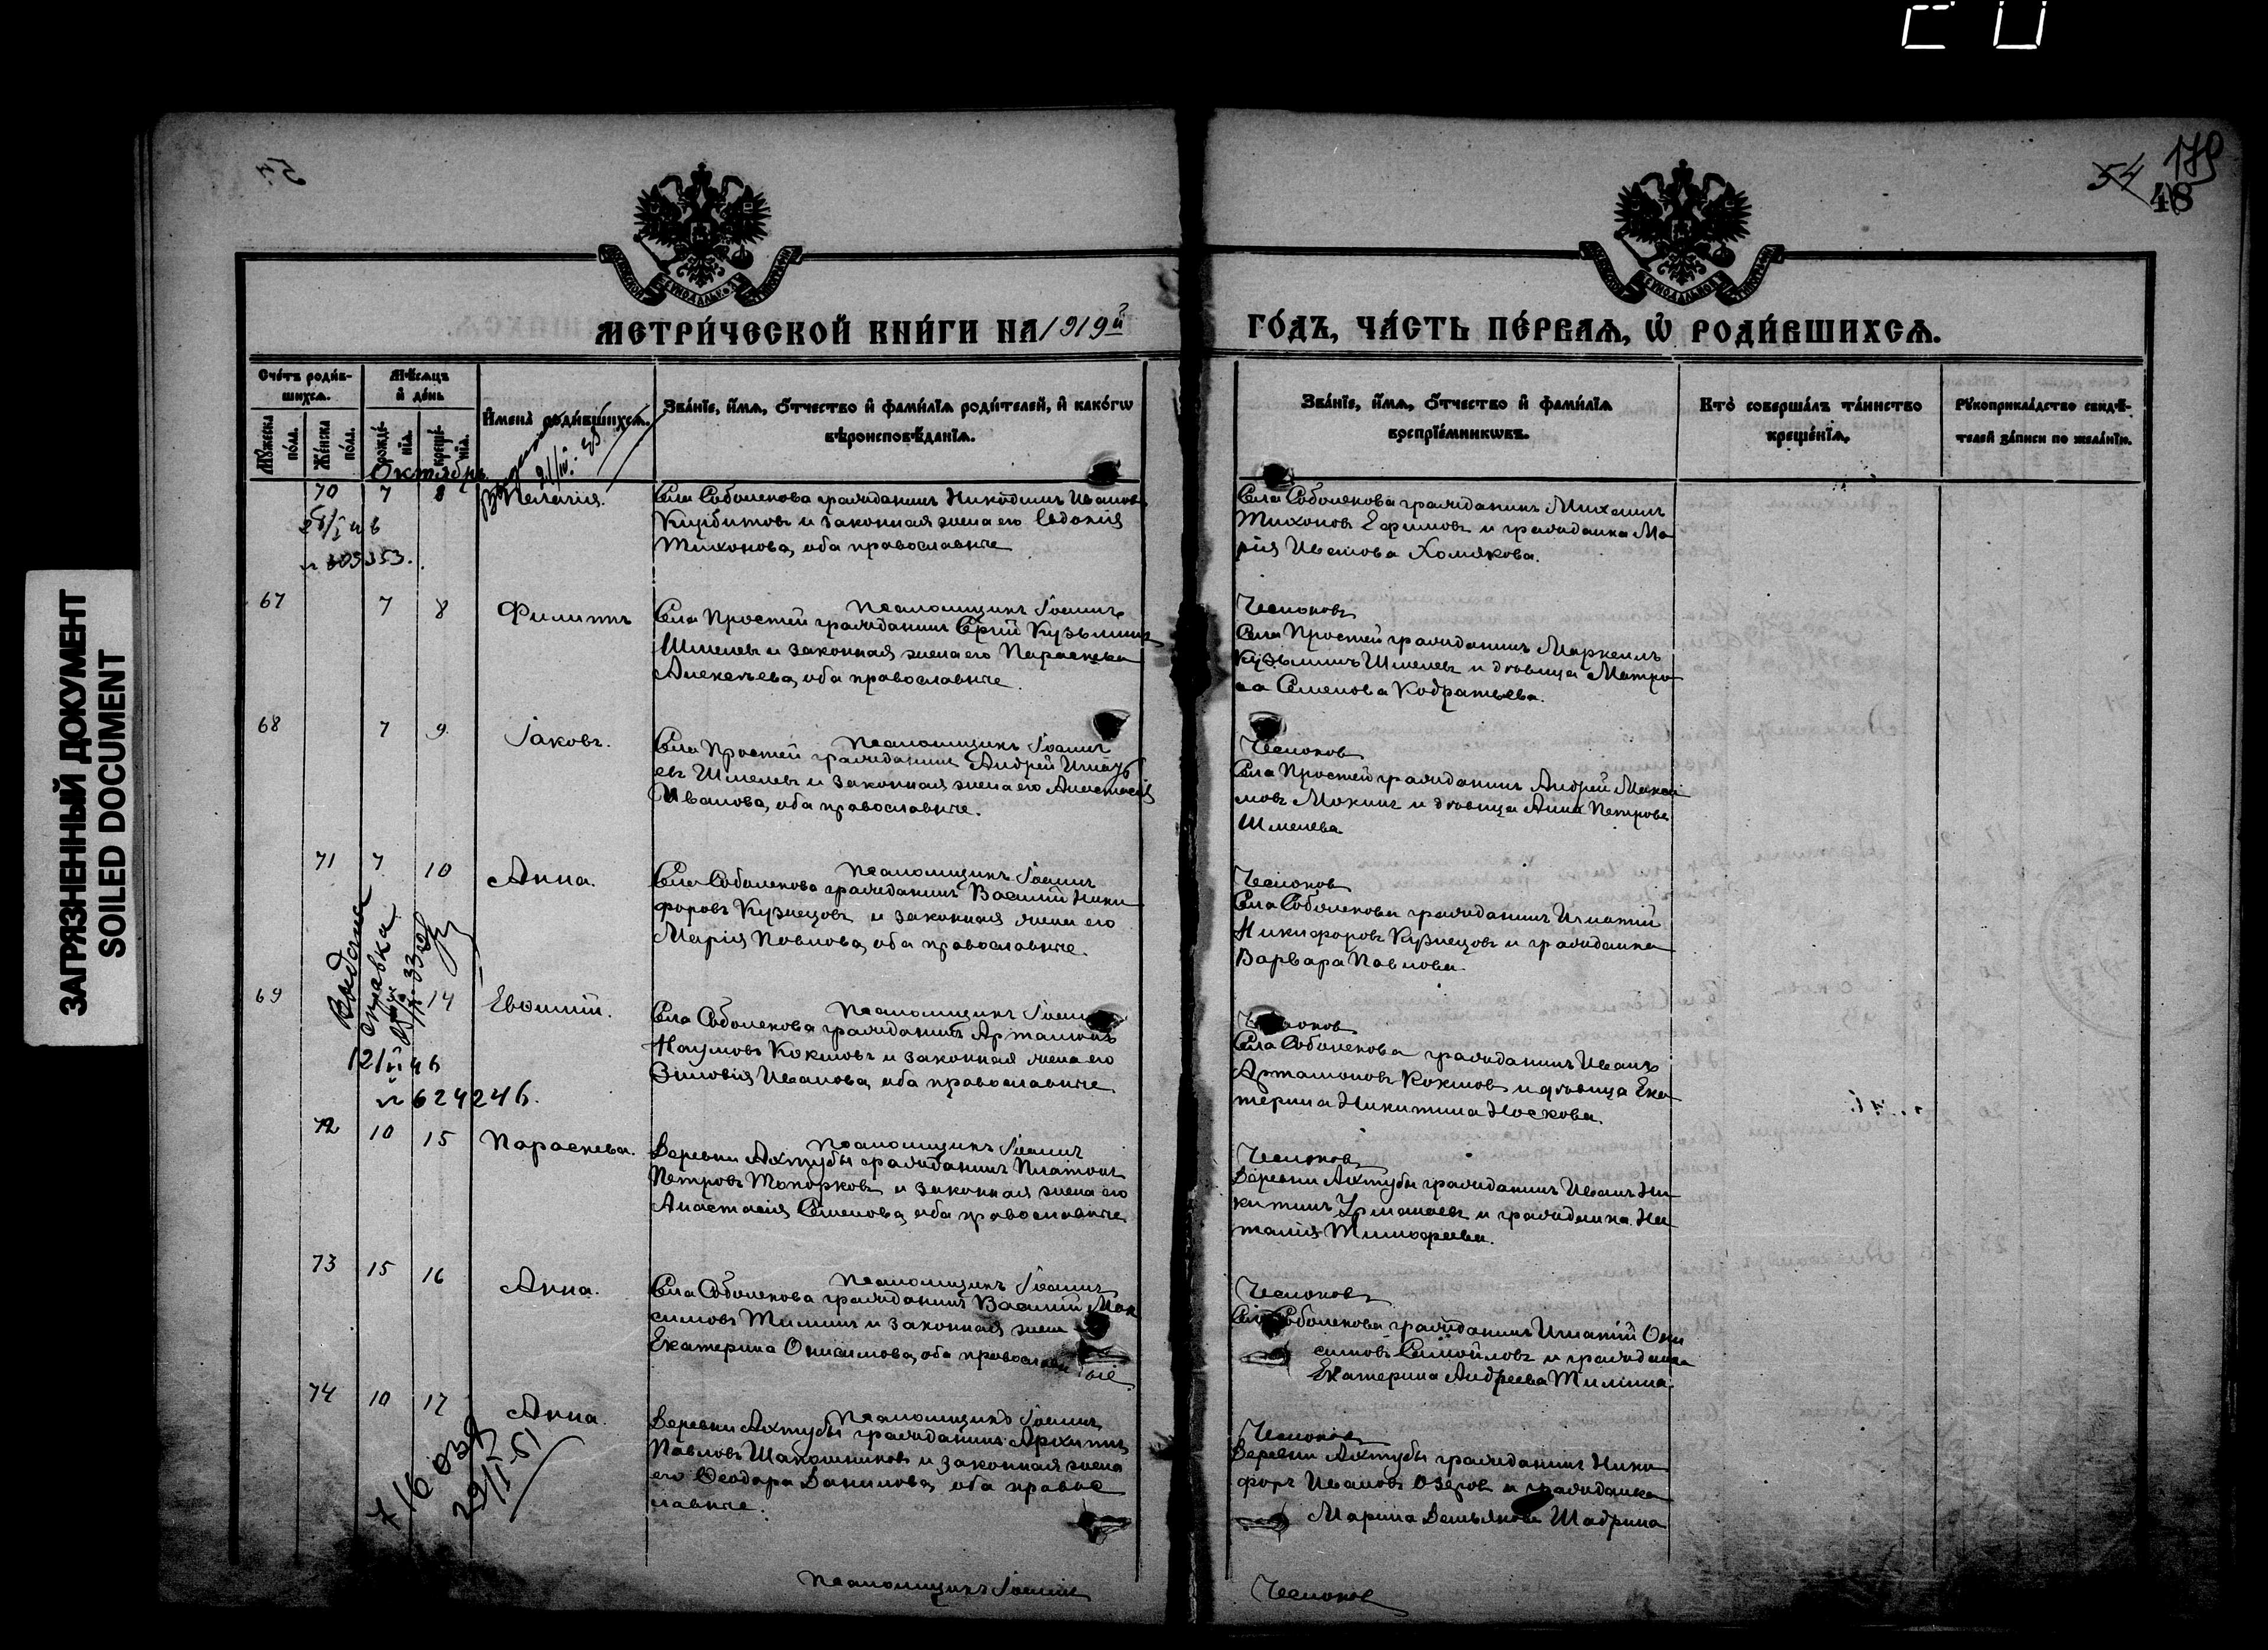 ЗАГРЯЗНЕННЫЙ ДОКУМЕНТ
SOILED DOCUMENT
54 179
48
МЕТРИ́ЧЕСКОЙ КНИ́ГИ НА 1919й
ГО́ДЪ, ЧА́СТЬ ПЕ́РВАѦ, Ѡ РОДИ́ВШИХСѦ.
Сче́тъ роди́в-
шихсѧ.
Мꙋ́жеска по́ла.
Же́нска по́ла.
Мѣ́сѧцъ
и де́нь
рожде́-
нїѧ.
креще́-
нїѧ.
И́мена̀ роди́вшихсѧ.
Зва́нїе, и́мѧ, о́тчество и фами́лїѧ роди́телей, и како́гѡ
вѣроисповѣ́данїѧ.
Зва́нїе, и́мѧ, о́тчество и фами́лїѧ
воспрїе́мникѡвъ.
Кто̀ соверша́лъ та́инство
креще́нїѧ.
Рꙋкоприкла́дство свидѣ́-
телей за́писи по жела́нїю.
Октябрь
70 7 8 Пелагія.
Села Соболекова гражданинъ Никодимъ Ивановъ
Курбитовъ и законная жена его Евдокія
Тихонова, оба православные
Села Соболекова гражданинъ Михаилъ
Тихоновъ Ефимовъ и гражданка Ма-
рія Иванова Хомякова.
№ 309353.
Псаломщикъ Іоаннъ Чесноковъ
67 7 8 Филиппъ
Села Простей гражданинъ Сергій Кузьминъ
Шмелевъ и законная жена его Параскева
Алексѣева, оба православные.
Села Простей гражданинъ Маркеллъ
Кузьминъ Шмелевъ и дѣвица Матро-
на Семенова Кодратьева.
Псаломщикъ Іоаннъ Чесноковъ
68 7 9 Іаковъ.
Села Простей гражданинъ Андрей
евъ Шмелевъ и законная жена его Анастасія
Иванова, оба православные.
Села Простей гражданинъ Андрей Макси
мовъ Мокинъ и дѣвица Анна Петрова
Шмелева
Псаломщикъ Іоаннъ Чесноковъ
71 7 10 Анна.
Села Соболекова гражданинъ Василій Ники
форовъ Кузнецовъ и законная жена его
Марія Павлова, оба православные.
Села Соболекова гражданинъ Игнатій
Никифоровъ Кузнецовъ и гражданка
Варвара Павлова.
Псаломщикъ Іоаннъ Чесноковъ
Выдана
справка
69 14 Евѳимій.
Села Соболекова гражданинъ Артамонъ
Наумовъ Кокшовъ и законная жена его
Зиновія Иванова, оба православные
Села Соболекова гражданинъ Иванъ
Артамоновъ Кокшовъ и дѣвица Ека-
терина Никитина Носкова.
12/VI 46
№ 624246.
Псаломщикъ Іоаннъ Чесноковъ
72 10 15 Параскева.
Деревни Ахтубы гражданинъ Платонъ
Петровъ Топорковъ и законная жена его
Анастасія Семенова, оба православные
Деревни Ахтубы гражданинъ Иванъ Ни-
китинъ и гражданка На-
талія Тимофеева.
Псаломщикъ Іоаннъ Чесноковъ
73 15 16 Анна.
Села Соболекова гражданинъ Василій Мак
симовъ Тилинъ и законная жена
Екатерина Онисимова, оба православные.
Села Соболекова гражданинъ Игнатій Они
симовъ Самойловъ и гражданка
Екатерина Андреева Тилина.
Псаломщикъ Іоаннъ Чесноковъ
74 10 17 Анна.
Деревни Ахтубы гражданинъ Архиппъ
Павловъ Шапошниковъ и законная жена
его Ѳеодора Данилова, оба право
славные.
Деревни Ахтубы гражданинъ Ники
форъ Ивановъ Озеровъ и гражданка
Марина Демьянова Шадрина
29/I-51
Псаломщикъ Іоаннъ Чесноковъ